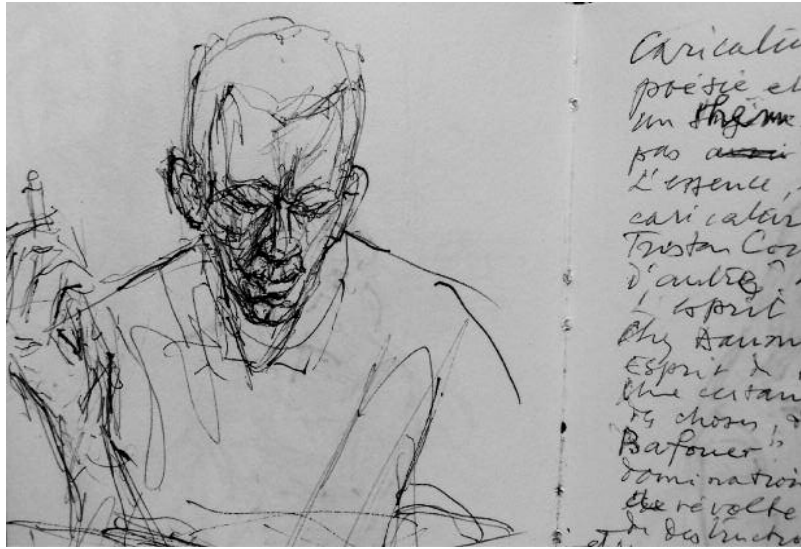 Caricatu
poésie et
un
pas
L'essence,
caricatur
Tristan Cor
d'autres
L'esprit
Chez Daum
Esprit de
Une certain
des choses,
Bafouer
domination
révolte
de destructio